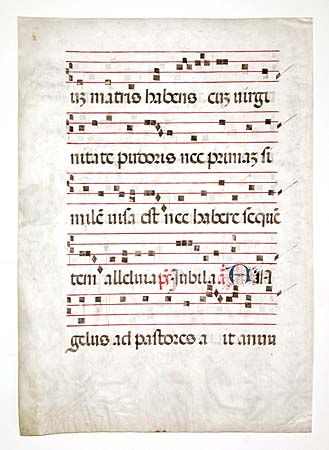 uz matris habens cuz virgi
nitate pudoris nec primaz si
milē visa est nec habere sequē
tem alleluia ps Jubila a A N
gelus ad pastores a it annu